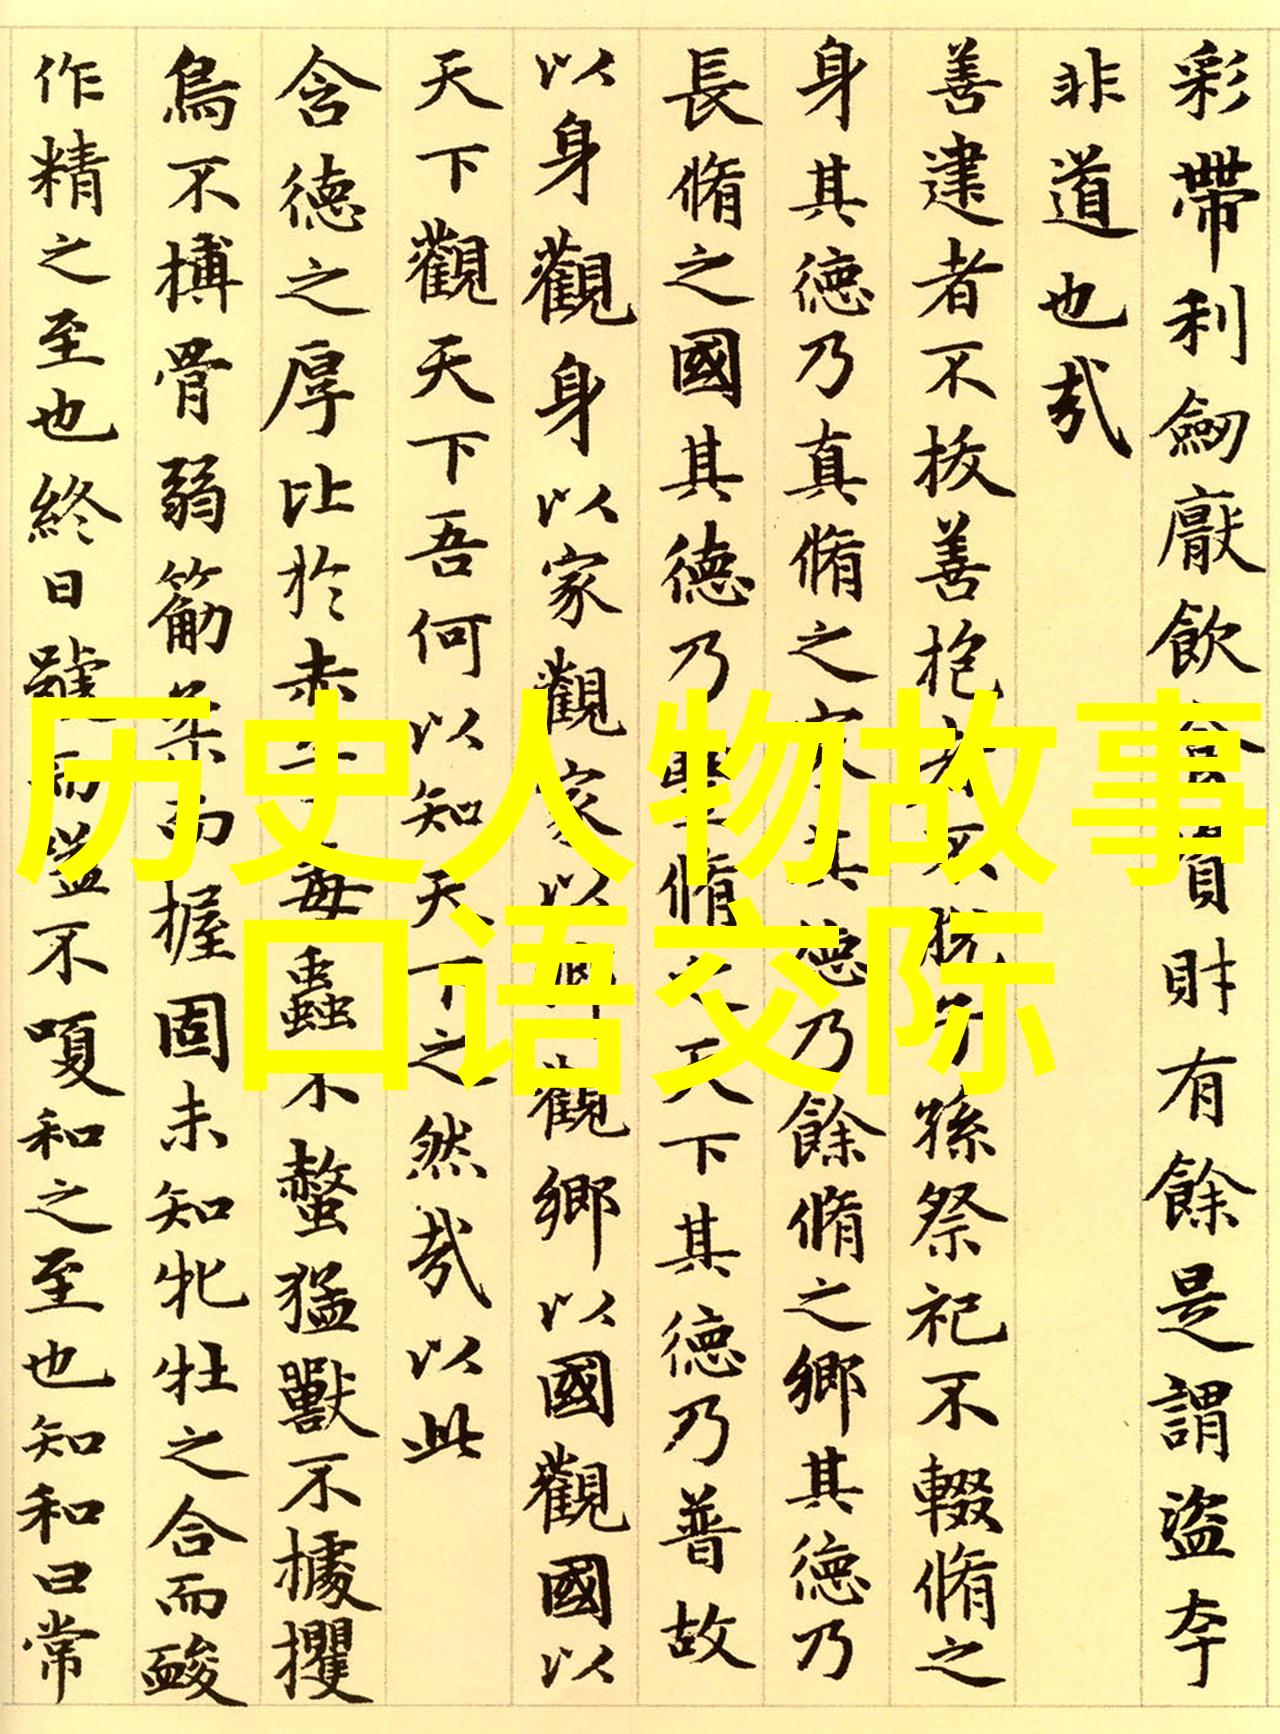 彩帶利劔厭飲食資財有餘是謂盜夸
非道也哉
善建者不拔善抱者不脫子孫祭祀不輟脩之
身其德乃真脩之家其德乃餘脩之鄉其德乃
長脩之國其德乃豐脩之天下其德乃普故
以身觀身以家觀家以鄉觀鄉以國觀國以
天下觀天下吾何以知天下之然哉以此
含德之厚比於赤子毒蟲不螫猛獸不據攫
鳥不搏骨弱筋柔而握固未知牝牡之合而䘒
作精之至也終日號而嗌不嗄和之至也知和曰常
历史人物故事
口语交际